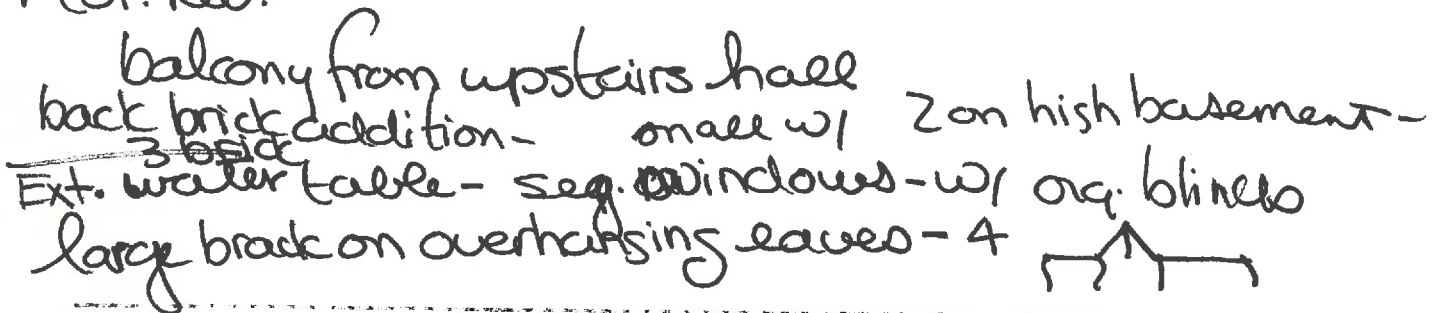 balcony from upstairs hall
back brick addition - on all w/ 2 on high basement -
3 brick
Ext. water table - seg. windows - w/ org. blinds
large brack on overhanging eaves - 4